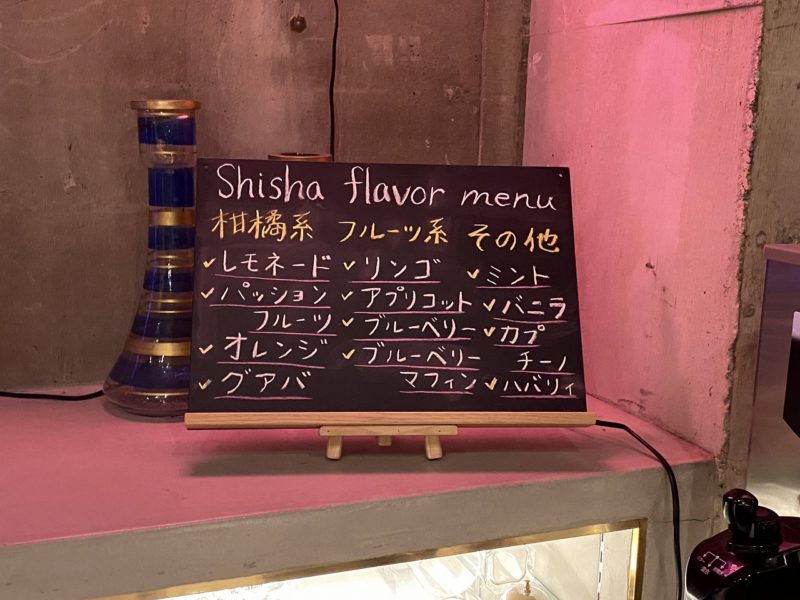 Shisha flavor menu
柑橘系 フルーツ系 その他
レモネード
パッション
フルーツ
オレンジ
グアバ
リンゴ
アプリコット
ブルーベリー
ブルーベリー
マフィン
ミント
バニラ
カプ
チーノ
ハバリィ